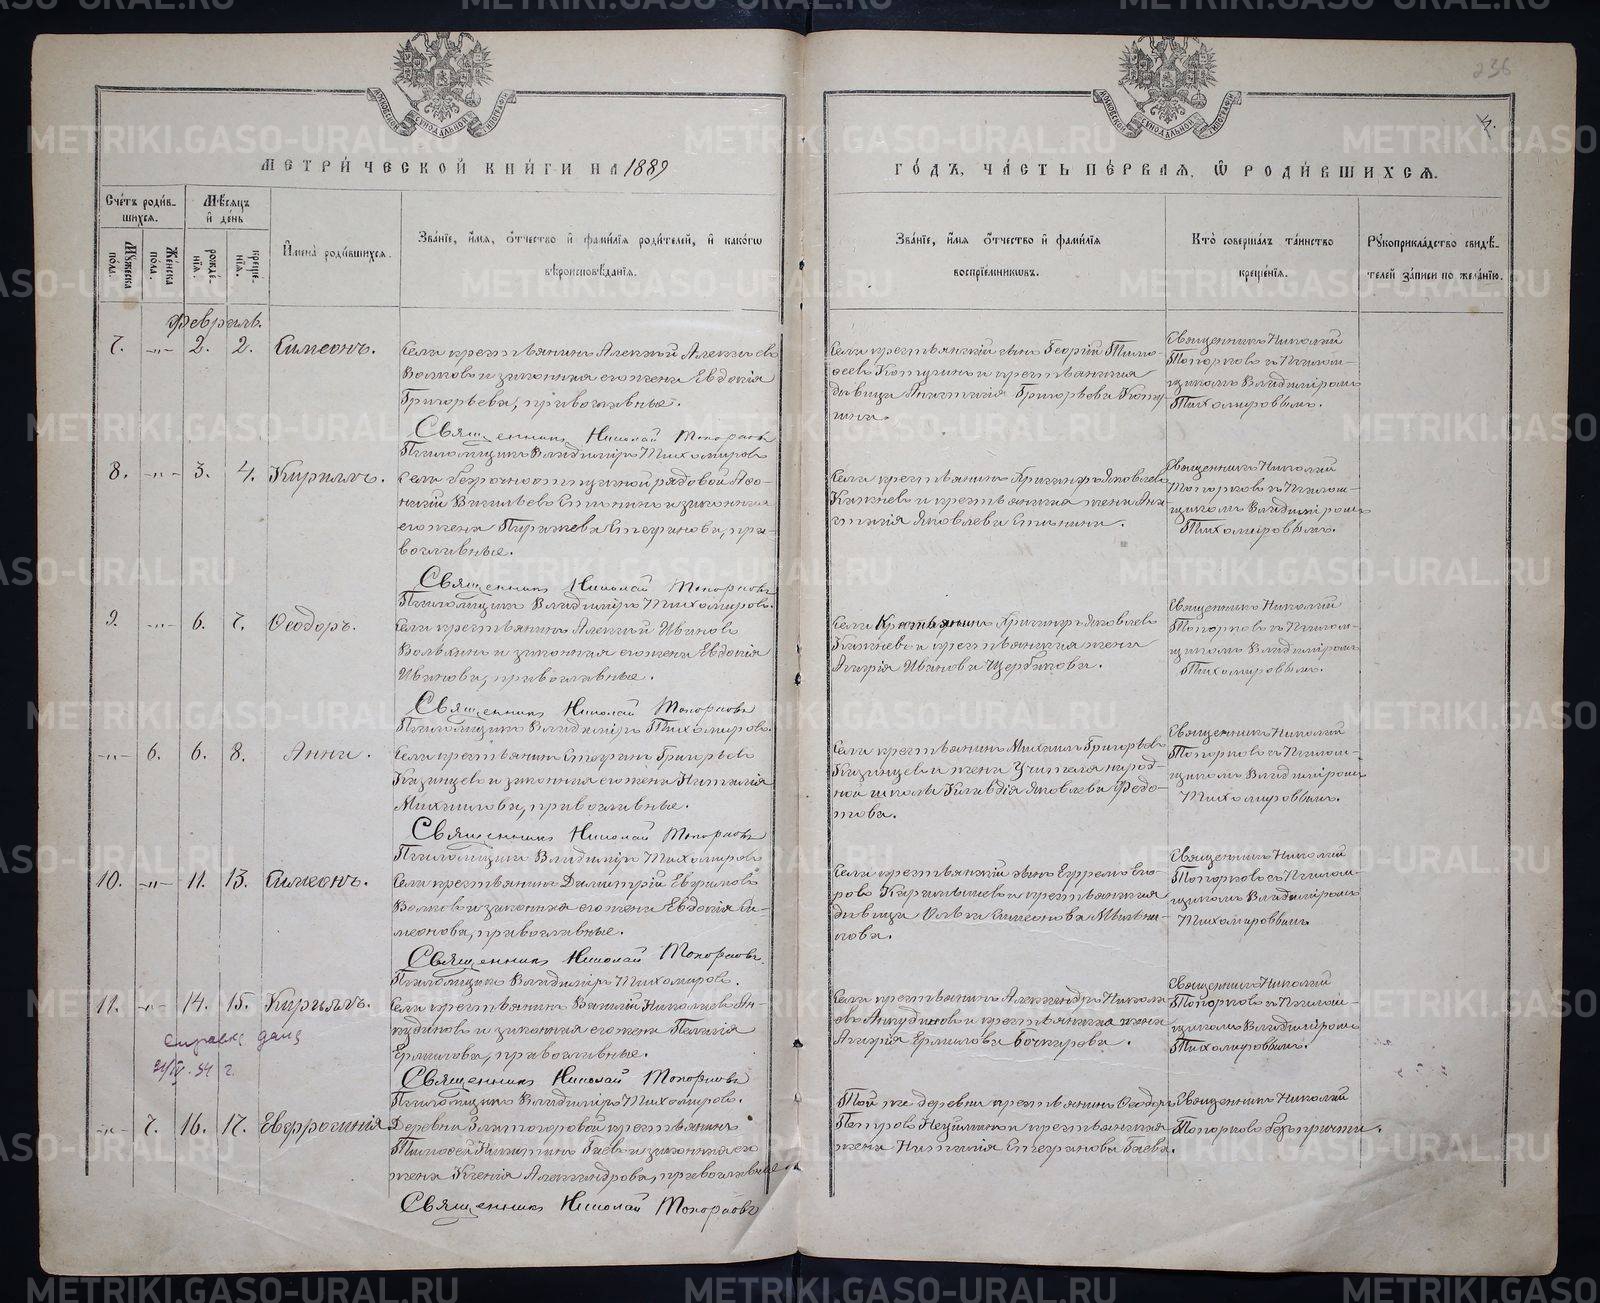 236
4.
МЕТРИ́ЧЕСКОЙ КНИ́ГИ НА 1889
ГО́ДЪ, ЧА́СТЬ ПЕ́РВАѦ, Ѡ РОДИ́ВШИХСѦ.
Сче́тъ роди́вшихся.
Мѣ́сяцъ и де́нь
Имена̀ роди́вшихся.
Зва́нїе, и́мя, о́тчество и фами́лїя роди́телей, и како́гѡ
вѣроисповѣ́данїя.
Му́жеска по́ла.
Же́нска по́ла.
рожде́нїя.
креще́нїя.
Зва́нїе, и́мя о́тчество и фами́лїя
воспрїе́мниковъ.
Кто̀ соверша́лъ та́инство
креще́нїя.
Рукоприкла́дство свидѣ́-
телей за́писи по жела́нїю.
Февраль.
7. -„- 2. 2. Симеонъ.
Села крестьянинъ Алексѣй Алексѣевъ
Волковъ и законная его жена Евдокія
Григорьева, православные.
Священникъ Николай Топорковъ
Псаломщикъ Владиміръ Тихомировъ
Села крестьянскій сынъ Георгій Тимо-
ѳеевъ и крестьянская
дѣвица Анастасія Григорьева
Священникъ Николай
Топорковъ съ Псалом-
щикомъ Владиміромъ
Тихомировымъ.
8. -„- 3. 4. Кириллъ.
Села безсрочноотпускной рядовой Аѳо-
насій Васильевъ и законная
его жена Параскева Стефанова, пра-
вославные.
Священникъ Николай Топорковъ
Псаломщикъ Владиміръ Тихомировъ.
Села крестьянинъ Яковлевъ
и крестьянская жена Ана-
стасія Яковлева
Священникъ Николай
Топорковъ съ Псалом-
щикомъ Владиміромъ
Тихомировымъ.
9. -„- 6. 7. Ѳеодоръ.
Села крестьянинъ Алексѣй Ивановъ
и законная его жена Евдокія
Иванова, православные.
Священникъ Николай Топорковъ
Псаломщикъ Владиміръ Тихомировъ.
Села Крестьянинъ Яковлевъ
и крестьянская жена
Иванова Щербакова.
Священникъ Николай
Топорковъ съ Псалом-
щикомъ Владиміромъ
Тихомировымъ.
-„- 6. 6. 8. Анна.
Села крестьянинъ Стефанъ Григорьевъ
Казанцевъ и законная его жена Наталія
Михаилова, православные.
Священникъ Николай Топорковъ
Псаломщикъ Владиміръ Тихомировъ
Села крестьянинъ Михаилъ Григорьевъ
Казанцевъ и жена Учителя народ-
ной школы Клавдія Яковлева Федо-
това.
Священникъ Николай
Топорковъ съ Псалом-
щикомъ Владиміромъ
Тихомировымъ.
10. -„- 11. 13. Симеонъ.
Села крестьянинъ Димитрій Евфимовъ
Волковъ и законная его жена Евдокія Си-
меонова, православные.
Священникъ Николай Топорковъ.
Псаломщикъ Владиміръ Тихомировъ.
Села крестьянскій сынъ Ефремъ Его-
ровъ и крестьянская
дѣвица Ольга Симеонова
Священникъ Николай
Топорковъ съ Псалом-
щикомъ Владиміромъ
Тихомировымъ
11. -„- 14. 15. Кириллъ.
Села крестьянинъ Василій Николаевъ Ан-
кудиновъ и законная его жена Пелагія
Ермилова, православные.
Священникъ Николай Топорковъ
Псаломщикъ Владиміръ Тихомировъ.
Села крестьянинъ Александръ Никола-
евъ Анкудиновъ и крестьянская жена
Ермилова Бочкарева.
Священникъ Николай
Топорковъ съ Псалом-
щикомъ Владиміромъ
Тихомировымъ.
Справка дана
-„- 7. 16. 17. Евфросинія
Деревни крестьянинъ
Тимоѳей Никитинъ Баевъ и законная его
жена Ксенія Александрова, православные
Священникъ Николай Топорковъ
Той же деревни крестьянинъ Ѳеодоръ
Петровъ и крестьянская
жена Наталія Стефанова Баева.
Священникъ Николай
Топорковъ безъ причта.